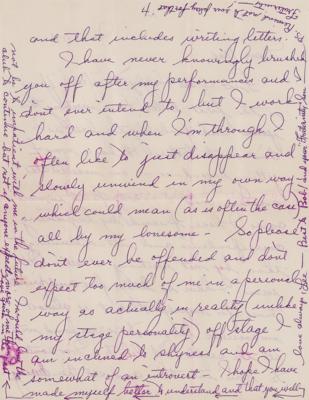 and that includes writing letters.
I have never knowingly brushed
you off after my performances and
don't ever intend to, but I work
hard and when I'm through I
often like to just disappear and
slowly unwind in my own way
which could mean (as is often the case)
all by my lonesome - So please
don't ever be offended and don't
expect too much of me in a personal
way as actually in reality (unlike
my stage personality) off stage I
am inclined to shyness and am
somewhat of an introvert - I hope I have
made myself better understand and that you will
not be in the future
with me
love always
Best to Bob! and your